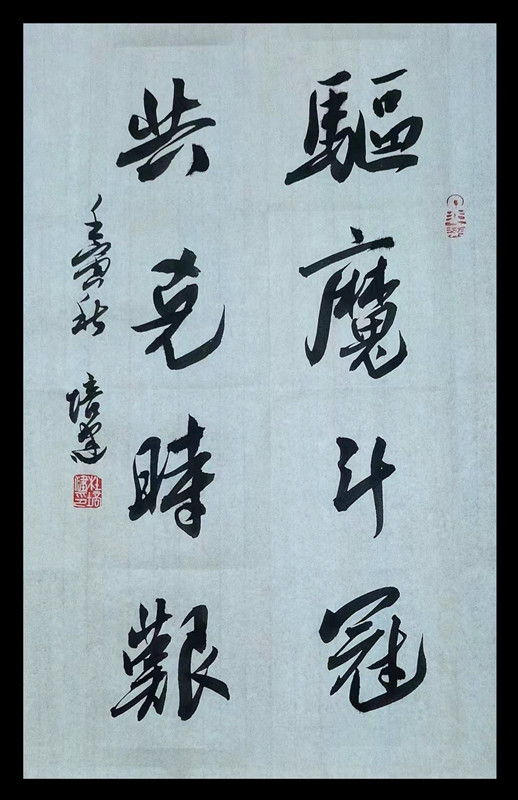 驅魔斗冠
共克時艱
壬寅秋 培建